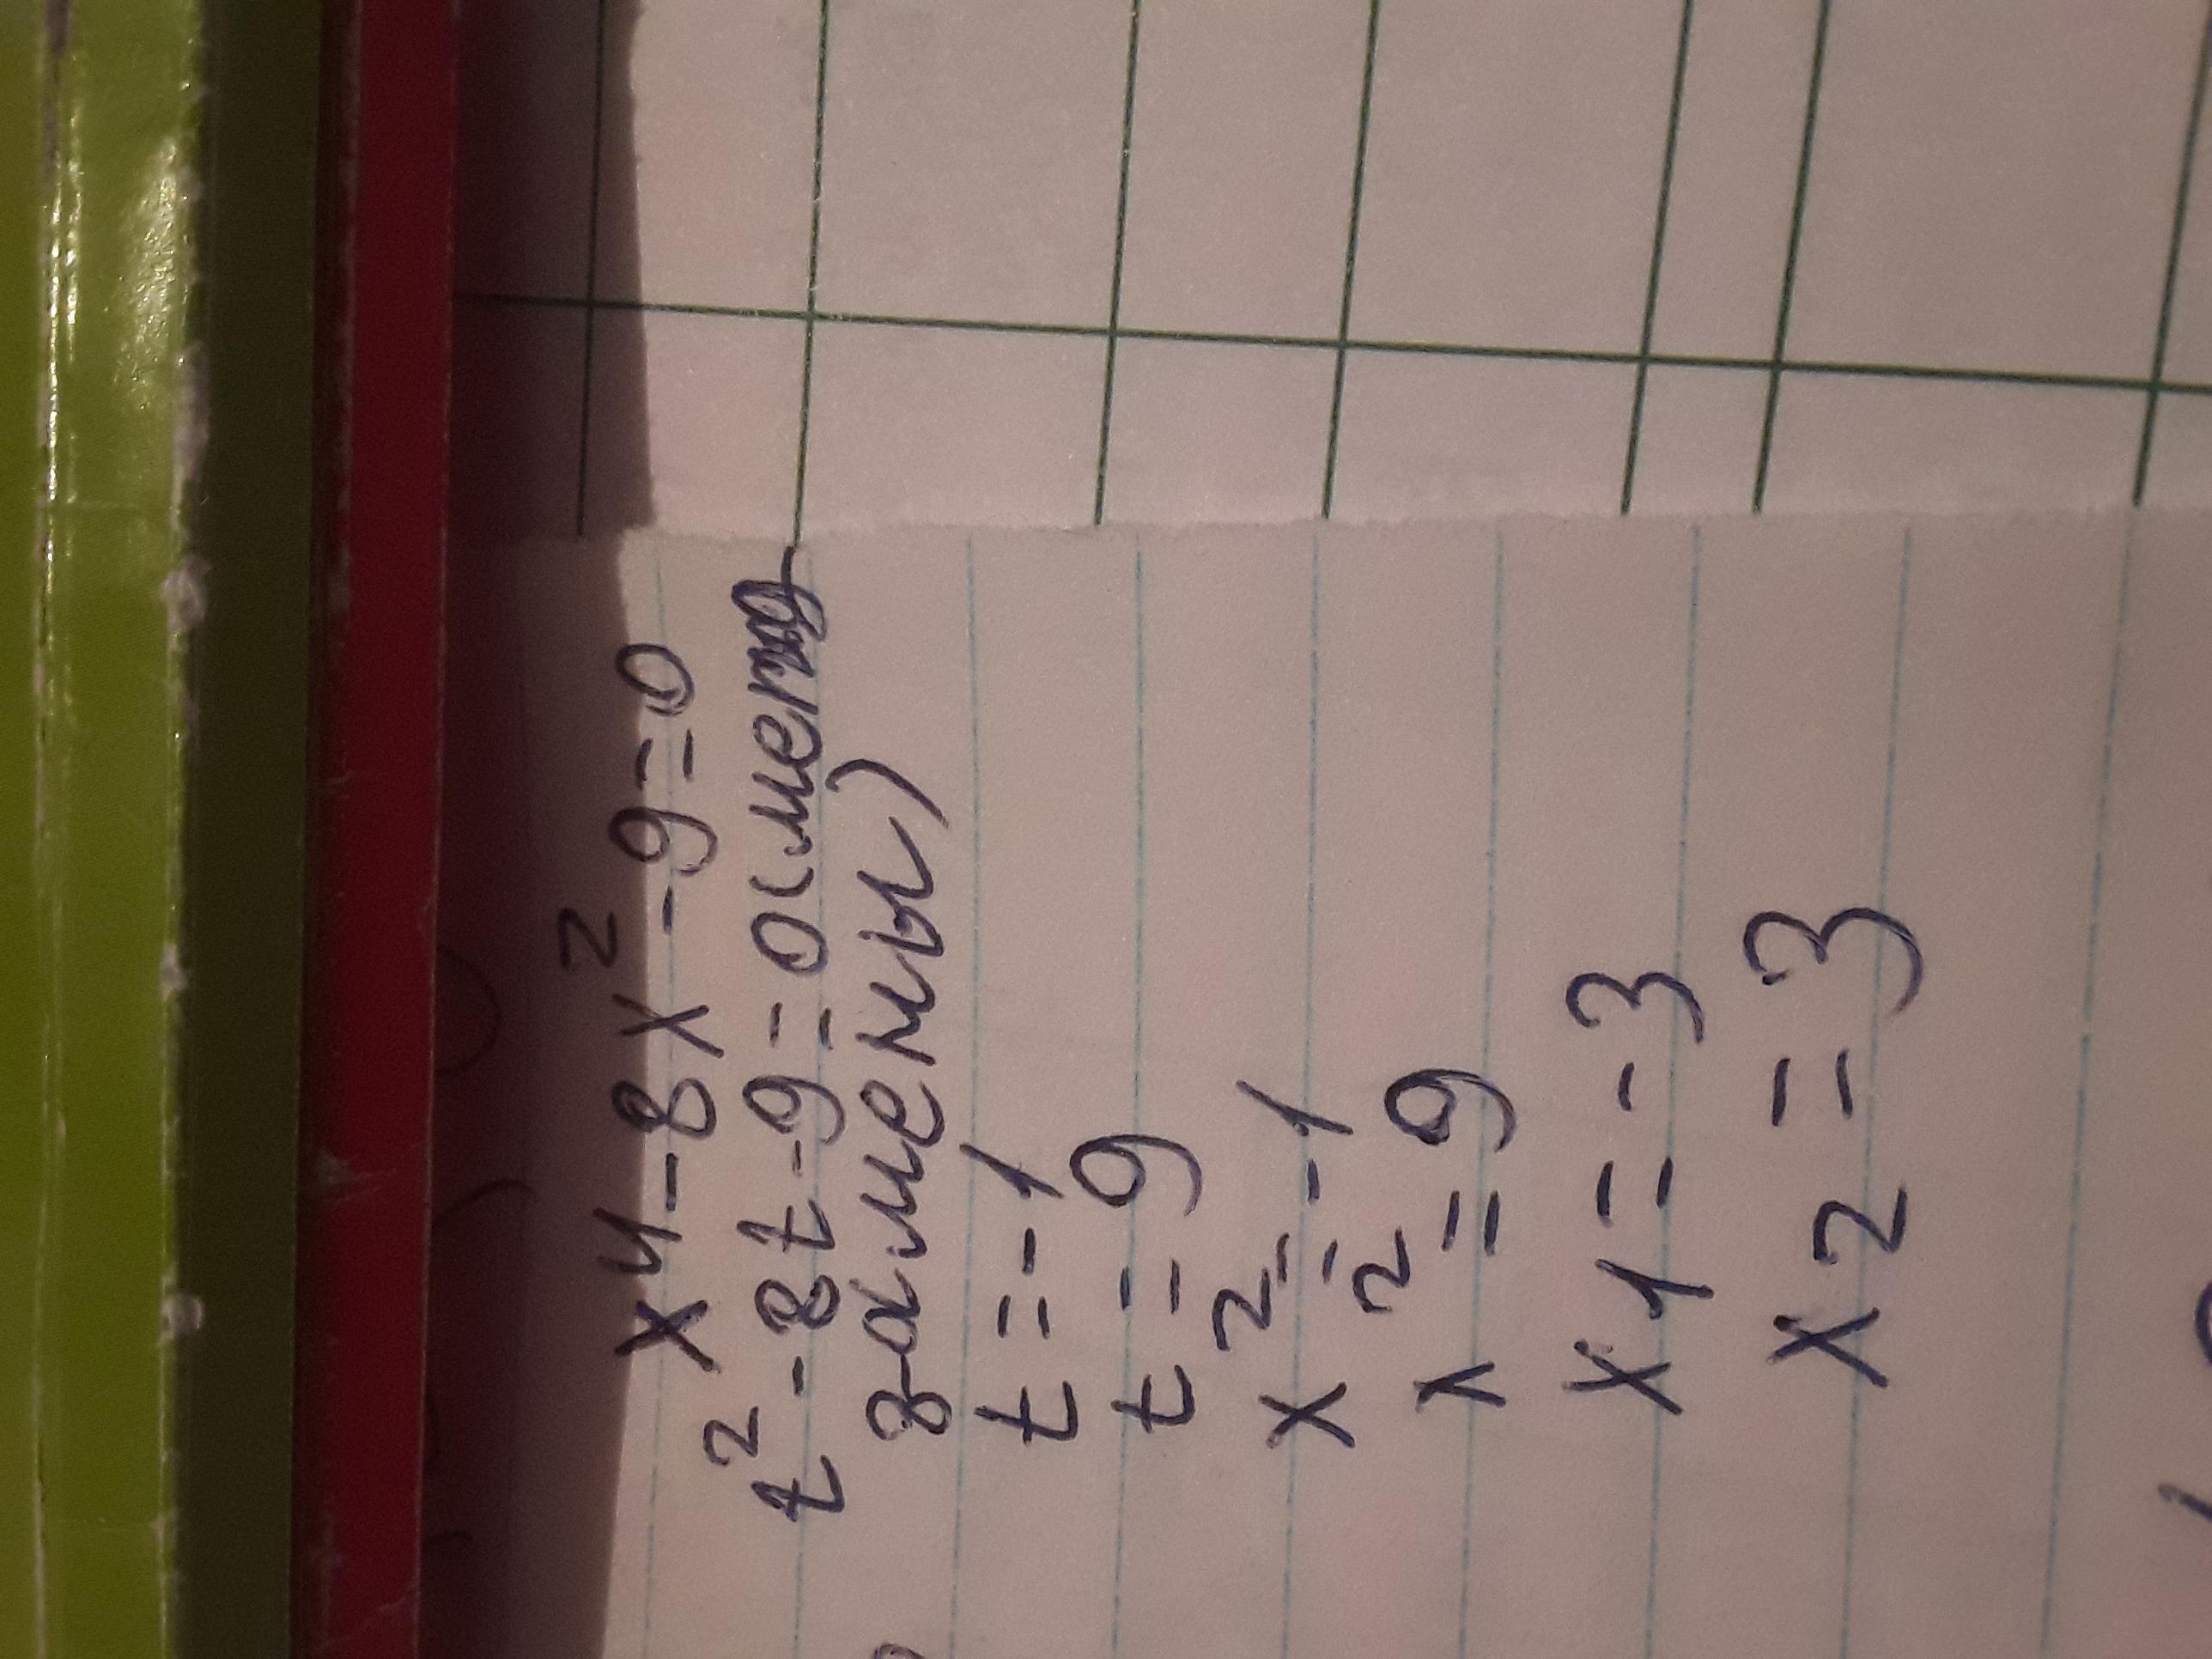 x⁴-8x²-9=0
t²-8t-9=0(метод
замены)
t=-1
t=9
x²=-1
x²=9
x1=-3
x2=3